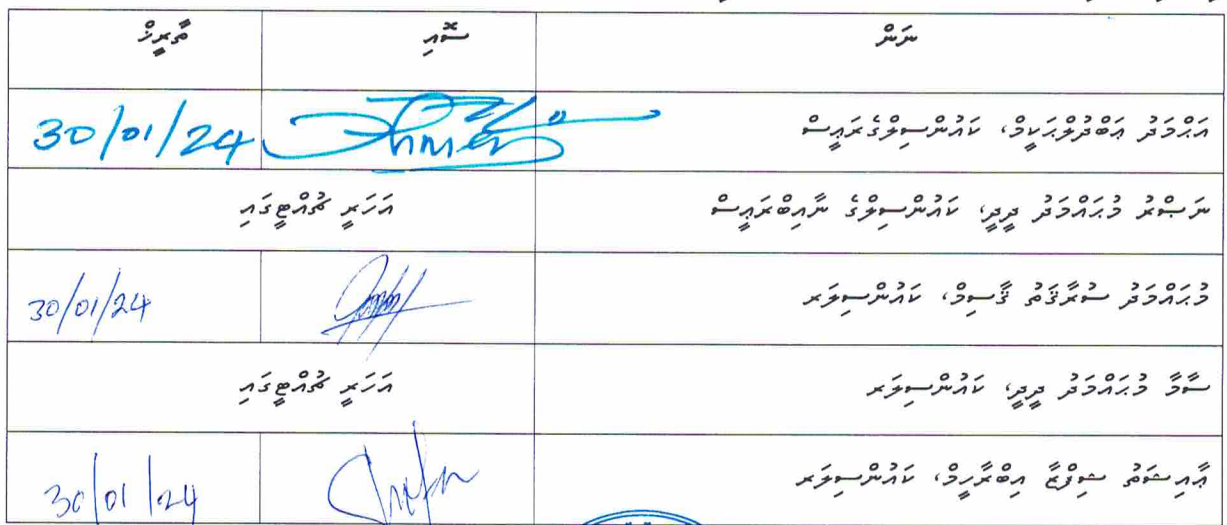 ނަން ސޮއި ތާރީޚް
އަޙްމަދު ޢަބްދުލްޙަކީމް، ކައުންސިލްގެރަޢީސް 30/01/24
ނަޞްރު މުޙައްމަދު ދީދީ، ކައުންސިލްގެ ނާއިބްރަޢީސް އަހަރީ ޗުއްޓީގައި
މުޙައްމަދު ސުރާޤަތު ޤާސިމް، ކައުންސިލަރ 30/01/24
ސާމާ މުޙައްމަދު ދީދީ، ކައުންސިލަރ އަހަރީ ޗުއްޓީގައި
ޢާއިޝަތު ޝިފްޒާ އިބްރާހީމް، ކައުންސިލަރ 30/01/24